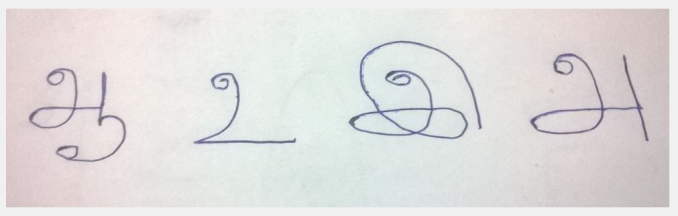 ஆ உ இ அ